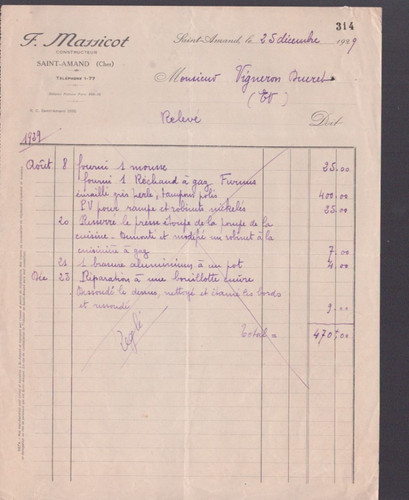 314
F. Massicot
CONSTRUCTEUR
SAINT-AMAND (Cher)
TÉLÉPHONE 1-77
Saint-Amand, le 25 décembre 1929
Monsieur Vigneron
Relevé
Doit
1929
Août 8 fourni 1 mousse 25.00
fourni 1 Réchaud à gaz
émaillé gris perle, tampons polis 400.00
PV pour rampe et robinets nickelés 25.00
20 Resserré le presse étoupe de la pompe de la
cuisine - Démonté et modifié un robinet à la
cuisinière à gaz 7.00
26 1 à un pot 4.00
Déc 23 Réparation à une bouillotte cuivre
Ressoudé le dessus, nettoyé et étamé les bords
et ressoudé 9.00
Réglé
Total = 470.00